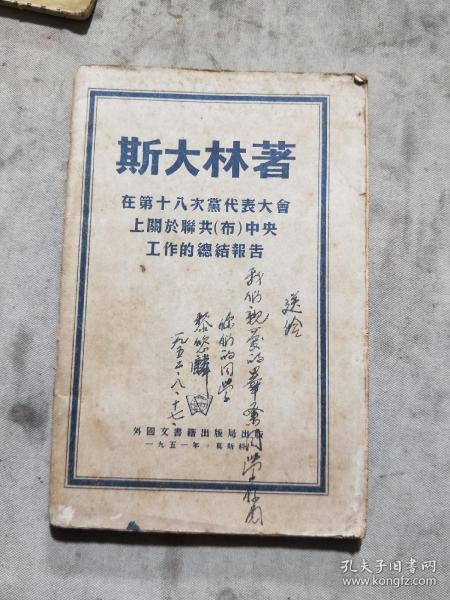 斯大林著
在第十八次黨代表大會
上關於聯共(布)中央
工作的總結報告
送给
我们親愛的畢業同學
你们的同学
黎悠麟
一九五三·八·十七·
外國文書籍出版局出版
一九五一年·莫斯科
孔夫子旧书网
www.kongfz.com